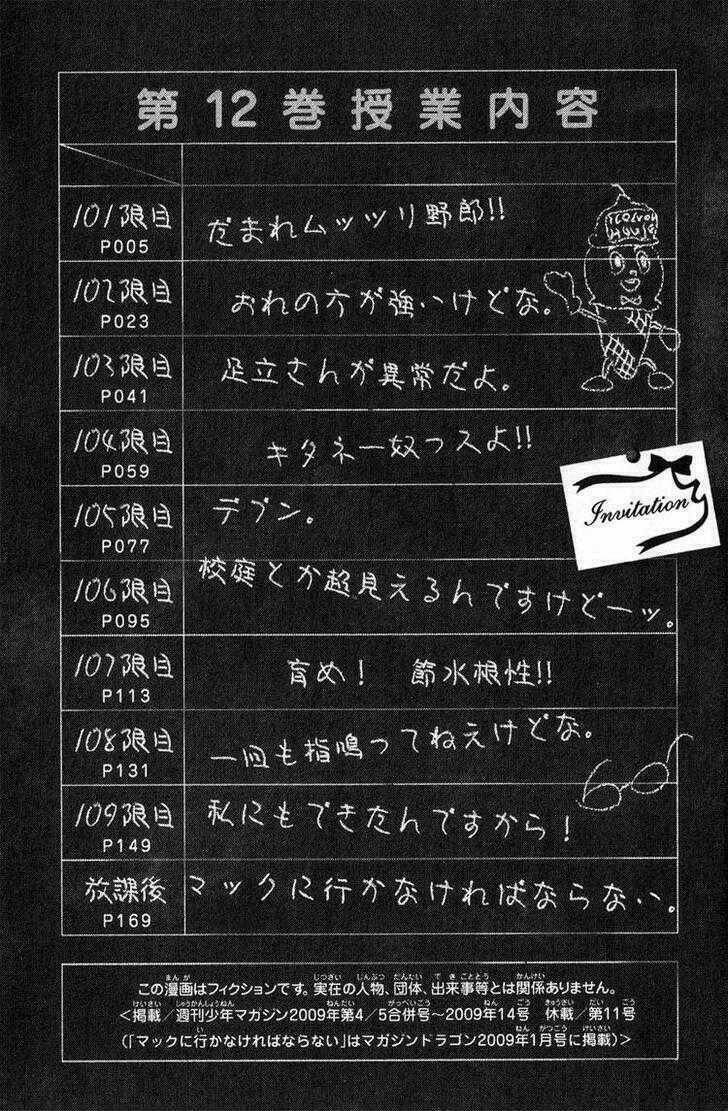 第12巻授業内容
101限目 だまれムッツリ野郎!!
P005
102限目 おれの方が強いけどな。
P023
103限目 足立さんが異常だよ。
P041
104限目 キタネー奴っスよ!!
P059
Invitation
105限目 デブン。
P077
106限目 校庭とか超見えるんですけどーッ。
P095
107限目 育め! 節水根性!!
P113
108限目 一回も指鳴ってねえけどな。
P131
109限目 私にもできたんですから!
P149
放課後 マックに行かなければならない。
P169
この漫画はフィクションです。実在の人物、団体、出来事等とは関係ありません。
<掲載/週刊少年マガジン2009年第4/5合併号〜2009年14号 休載/第11号
(「マックに行かなければならない」はマガジンドラゴン2009年1月号に掲載)>